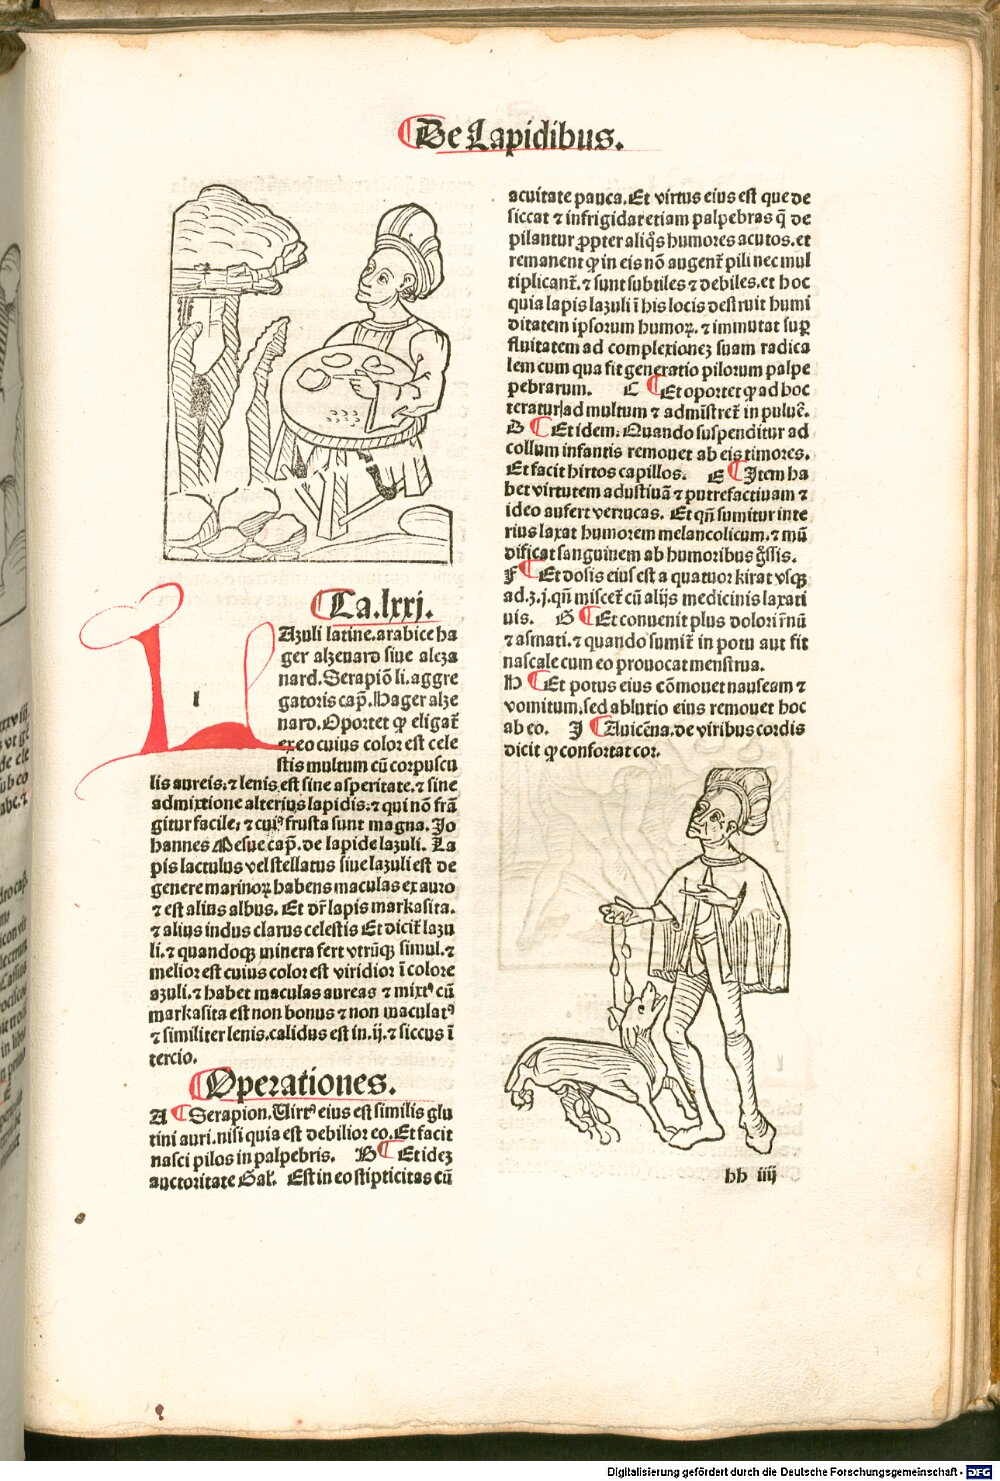 De Lapidibus.
Ca.lxxj.
Azuli latine.arabice ha
ger alzenard siue aleza
nard.Serapiō li.aggre
gatoris cap̄.Hager alze
nard.Oportet ꝙ eligat᷑
ex eo cuius color est cele
stis multum cū corpuscu
lis aureis.⁊ lenis est sine asperitate.⁊ sine
admixtione alterius lapidis.⁊ qui nō frā
gitur facile.⁊ cuiꝰ frusta sunt magna. Jo
hannes Mesue cap̄.de lapide lazuli. La
pis lactulus vel stellatus siue lazuli est de
genere marinoꝝ habens maculas ex auro
⁊ est alius albus. Et dr̄ lapis markasita.
⁊ alius indus clarus celestis Et dicit᷑ lazu
li.⁊ quandoqꝫ minera fert vtrūqꝫ simul.⁊
melior est cuius color est viridior ī colore
azuli.⁊ habet maculas aureas ⁊ mixtꝰ cū
markasita est non bonus ⁊ non maculatꝰ
⁊ similiter lenis.calidus est in.ij.⁊ siccus ī
tercio.
Operationes.
A Serapion.Uirtꝰ eius est similis glu
tini auri.nisi quia est debilior eo.Et facit
nasci pilos in palpebris. B Et ideꝫ
auctoritate Gal̄. Est in eo stipticitas cū
acuitate pauca.Et virtus eius est que de
siccat ⁊ infrigidat etiam palpebras q̄ de
pilantur ꝓpter aliq̄s humores acutos.et
remanent ꝙ in eis nō augent᷑ pili nec mul
tiplicant᷑.⁊ sunt subtiles ⁊ debiles.et hoc
quia lapis lazuli ī his locis destruit humi
ditatem ipsorum humoꝝ.⁊ immutat suꝑ
fluitatem ad complexioneꝫ suam radica
lem cum qua fit generatio pilorum palpe
pebrarum. C Et oportet ꝙ ad hoc
teratur ad multum ⁊ admīstret᷑ in puluē.
D Et idem.Quando suspenditur ad
collum infantis remouet ab eis timores.
Et facit hirtos capillos. E Item ha
bet virtutem adustiuā ⁊ putrefactiuam ⁊
ideo aufert verrucas. Et qn̄ sumitur inte
rius laxat humorem melancolicum.⁊ mū
dificat sanguinem ab humoribus g̊ssis.
F Et dosis eius est a quatuor kirat vsqꝫ
ad.ʒ.j.qn̄ miscet᷑ cū alijs medicinis laxati
uis. G Et conuenit plus dolori r̄nū
⁊ asmati.⁊ quando sumit᷑ in potu aut fit
nascale cum eo prouocat menstrua.
H Et potus eius cōmouet nauseam ⁊
vomitum.sed ablutio eius remouet hoc
ab eo. J Auicēna.de viribus cordis
dicit ꝙ confortat cor.
bb iiij
Digitalisierung gefördert durch die Deutsche Forschungsgemeinschaft - DFG